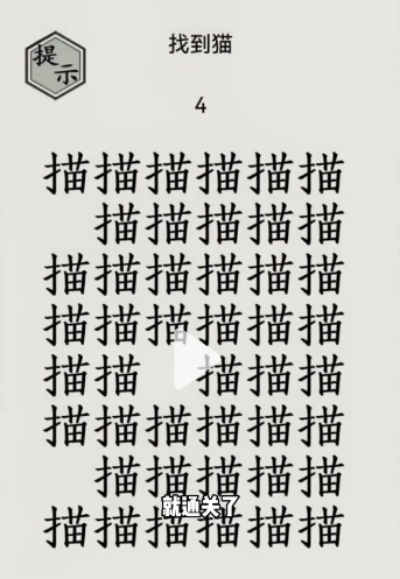 提示
找到猫
4
描描描描描描
描描描描描
描描描描描描
描描描描描描
描描 描描描
描描描描描描
描描描描描
就通关了
描描描描描描